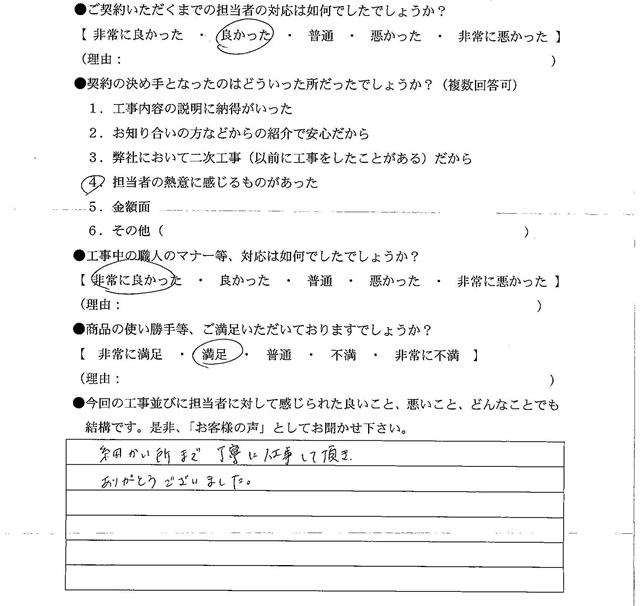 ●ご契約いただくまでの担当者の対応は如何でしたでしょうか？
【 非常に良かった ・ 良かった ・ 普通 ・ 悪かった ・ 非常に悪かった 】
（理由： ）
●契約の決め手となったのはどういった所だったでしょうか？（複数回答可）
１．工事内容の説明に納得がいった
２．お知り合いの方などからの紹介で安心だから
３．弊社において二次工事（以前に工事をしたことがある）だから
４．担当者の熱意に感じるものがあった
５．金額面
６．その他（ ）
●工事中の職人のマナー等、対応は如何でしたでしょうか？
【 非常に良かった ・ 良かった ・ 普通 ・ 悪かった ・ 非常に悪かった 】
（理由： ）
●商品の使い勝手等、ご満足いただいておりますでしょうか？
【 非常に満足 ・ 満足 ・ 普通 ・ 不満 ・ 非常に不満 】
（理由： ）
●今回の工事並びに担当者に対して感じられた良いこと、悪いこと、どんなことでも
結構です。是非、「お客様の声」としてお聞かせ下さい。
細かい所まで 丁寧に仕事して頂き
ありがとうございました。